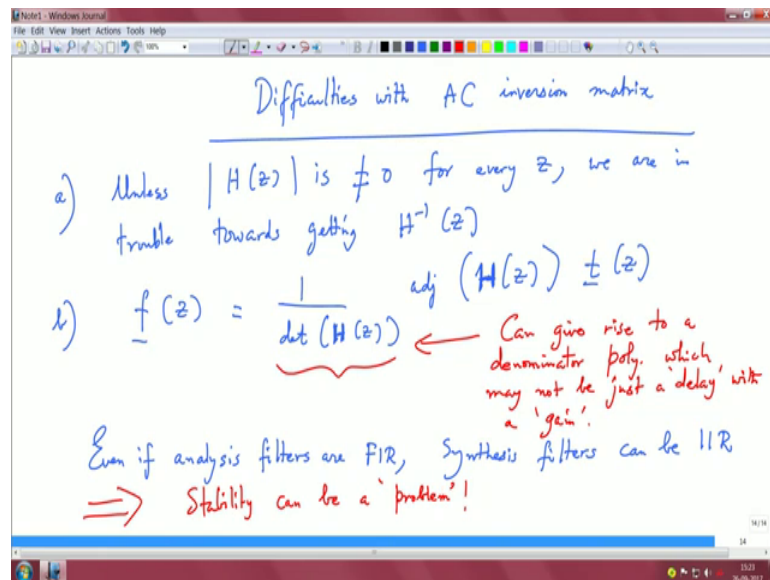 Note1 - Windows Journal
File Edit View Insert Actions Tools Help
100%
Difficulties with AC inversion matrix
a) Unless |H(z)| is ≠ 0 for every z, we are in
trouble towards getting H⁻¹(z)
b) f(z) = 1/det(H(z)) adj (H(z)) t(z)
Can give rise to a
denominator poly. which
may not be just a 'delay' with
a 'gain'.
Even if analysis filters are FIR, Synthesis filters can be IIR
⟹ Stability can be a 'problem'!
14/14
14
15:23